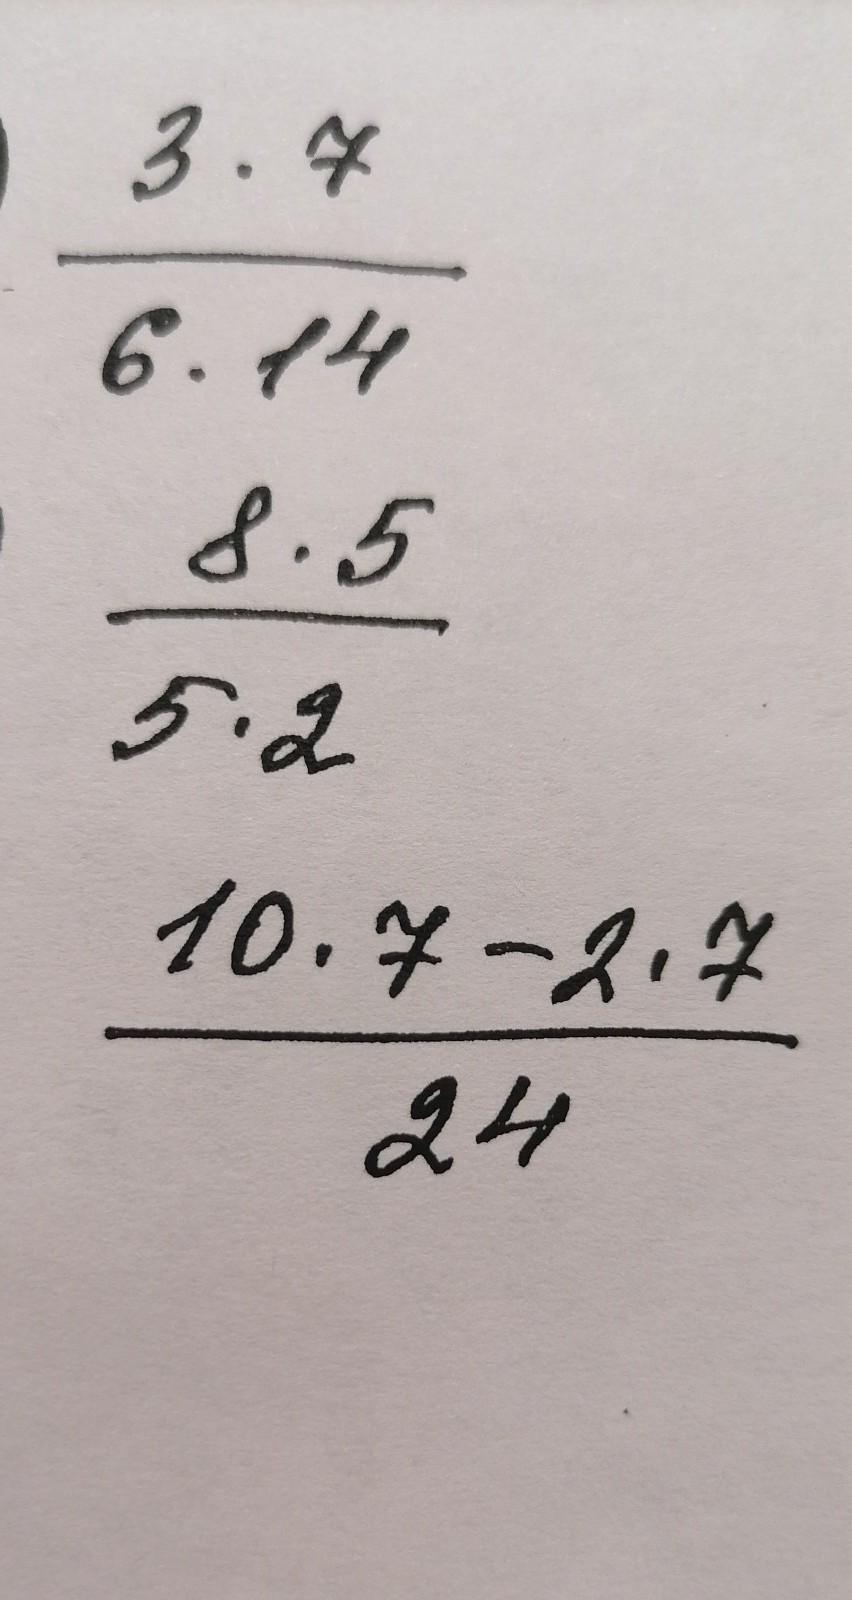 3 · 7
6 · 14
8 · 5
5 · 2
10 · 7 - 2 · 7
24